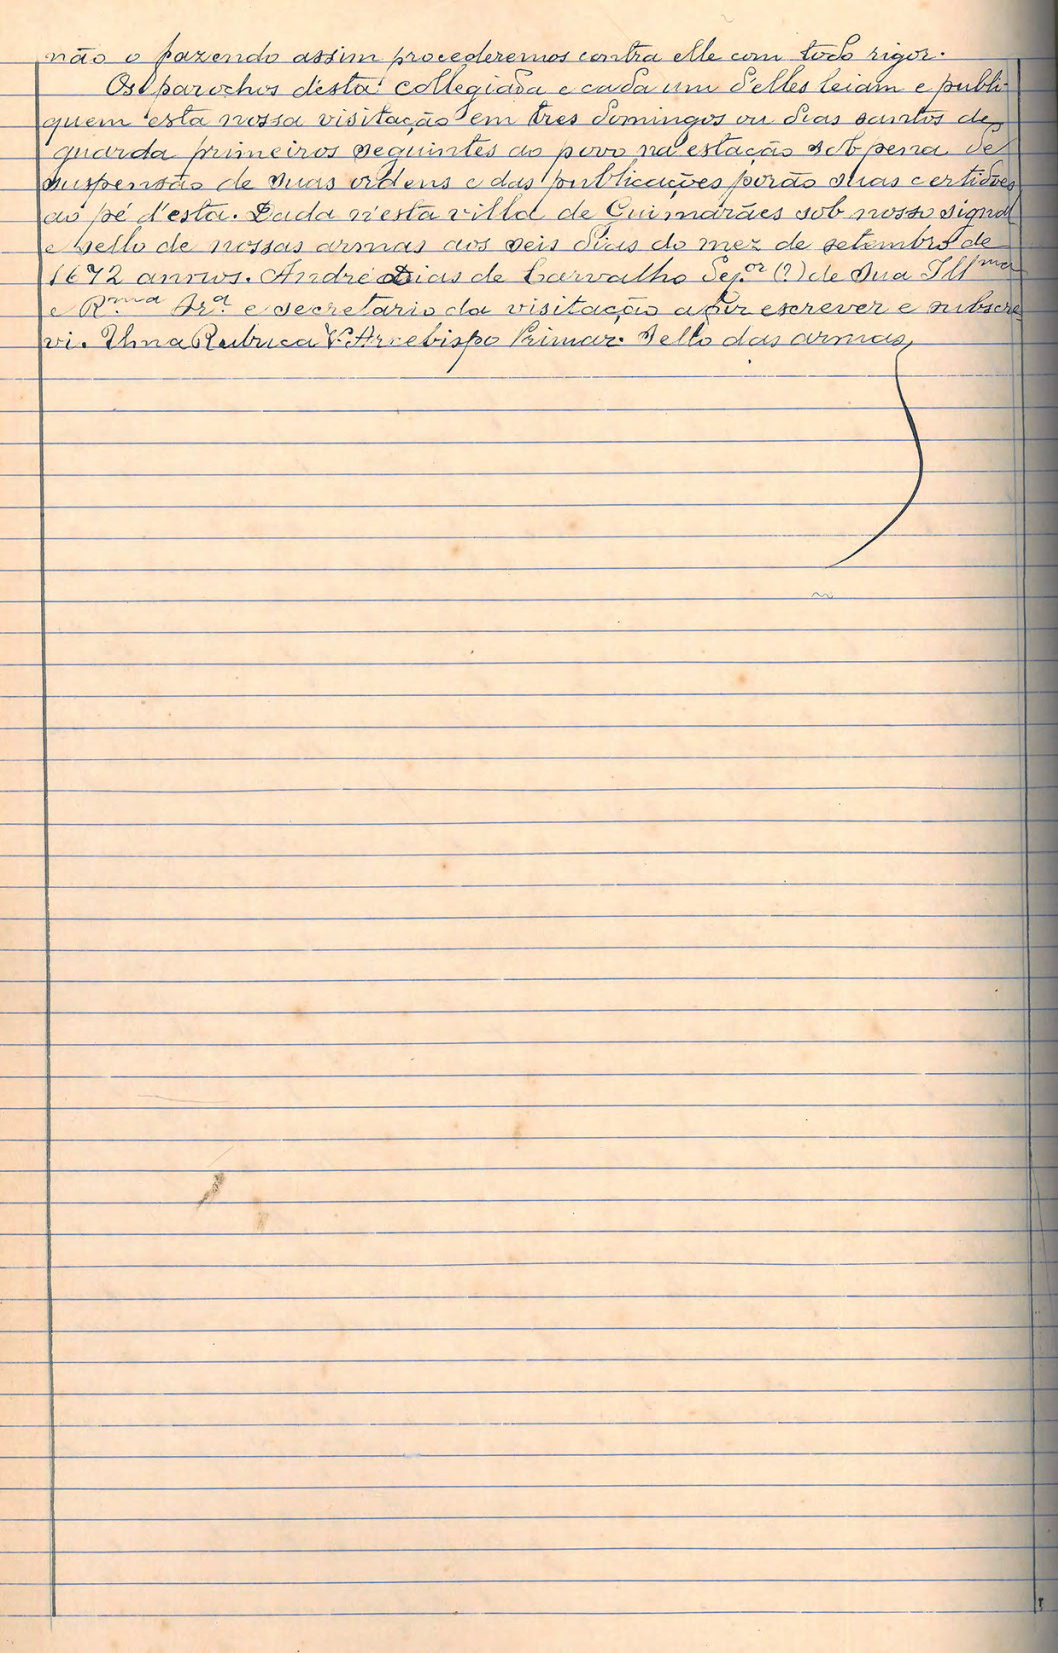 não o fazendo assim procederemos contra elle com todo rigor.
Os parochos d'esta collegiada e cada um d'elles leiam e publi-
quem esta nossa visitação em tres domingos ou dias santos de
guarda primeiros seguintes ao povo na estação sob pena de
suspensão de suas ordens e das publicações porão suas certidões
ao pé d'esta. Dada n'esta villa de Guimarães sob nosso signal
e sello de nossas armas aos seis dias do mez de setembro de
1672 annos. André Dias de Carvalho Sej.or (?) de Sua Illma
e R.mma Sr.a e secretario da visitação a fiz escrever e subscre-
vi. Uma Rubrica V. Arcebispo Primaz. Sello das armas